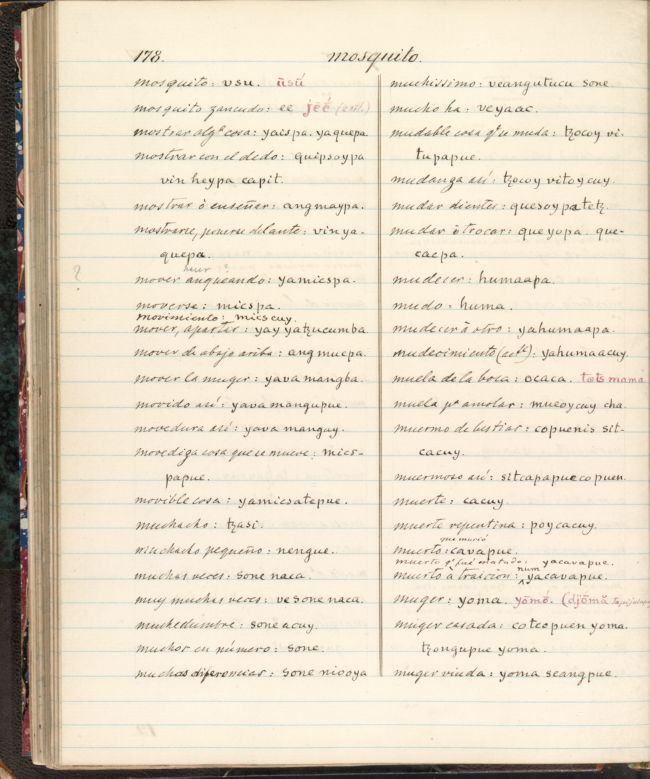 178.
mosquito.
mosquito: vsu. ūsū́
mosquito zancudo: ee jēḗ (estl.)
mostrar algª cosa: yacspa. yaquepa
mostrar con el dedo: quipsoypa
vin heypa capit.
mostrar ò enseñar: angmaypa.
mostrarse, ponerse delante: vin ya-
quepa.
?
mover anqueando: yamicspa.
moverse: micspa.
movimiento: mics cuy.
mover, apartar: yay yatzucumba
mover de abajo ariba: angmucpa.
mover la muger: yava mangba.
movido asi: yava mangupue.
movedura asi: yava manguy.
movediza cosa que se mueve: mics-
papue.
movible cosa: yamicsatepue.
muchacho: tzasi.
muchacho pequeño: nengue.
muchas veces: sone naca.
muy muchas veces: ve sone naca.
muchedumbre: sone acuy.
muchos en número: sone.
muchas diferencias: sone nicoya
muchissimo: veangutucu sone
mucho ha: veyaac.
mudable cosa qᵉ se muda: tzocoy vi-
tupapue.
mudanza asi: tzocoy vitoycuy.
mudar dientes: quesoypa tetz.
mudar ò trocar: queyopa. que-
caepa.
mudecer: humaapa.
mudo: huma.
mudecer à otro: yahumaapa.
mudecimiento (estª): yahumaacuy.
muela de la boca: ocaca. tɵts mama
muela pª amolar: mucoycuy cha.
muermo de bestias: copuenis sit-
cacuy.
muermoso asi: sitcapapue copuen.
muerte: cacuy.
muerte repentina: poycacuy.
que murió
muerto: cavapue.
muerto qᵉ fué matado: yacavapue.
num
muerto à traicion: yacavapue.
muger: yoma. yōmṓ. (djōmă
muger casada: coteopuen yoma.
tzongupue yoma.
muger viuda: yoma seangpue.